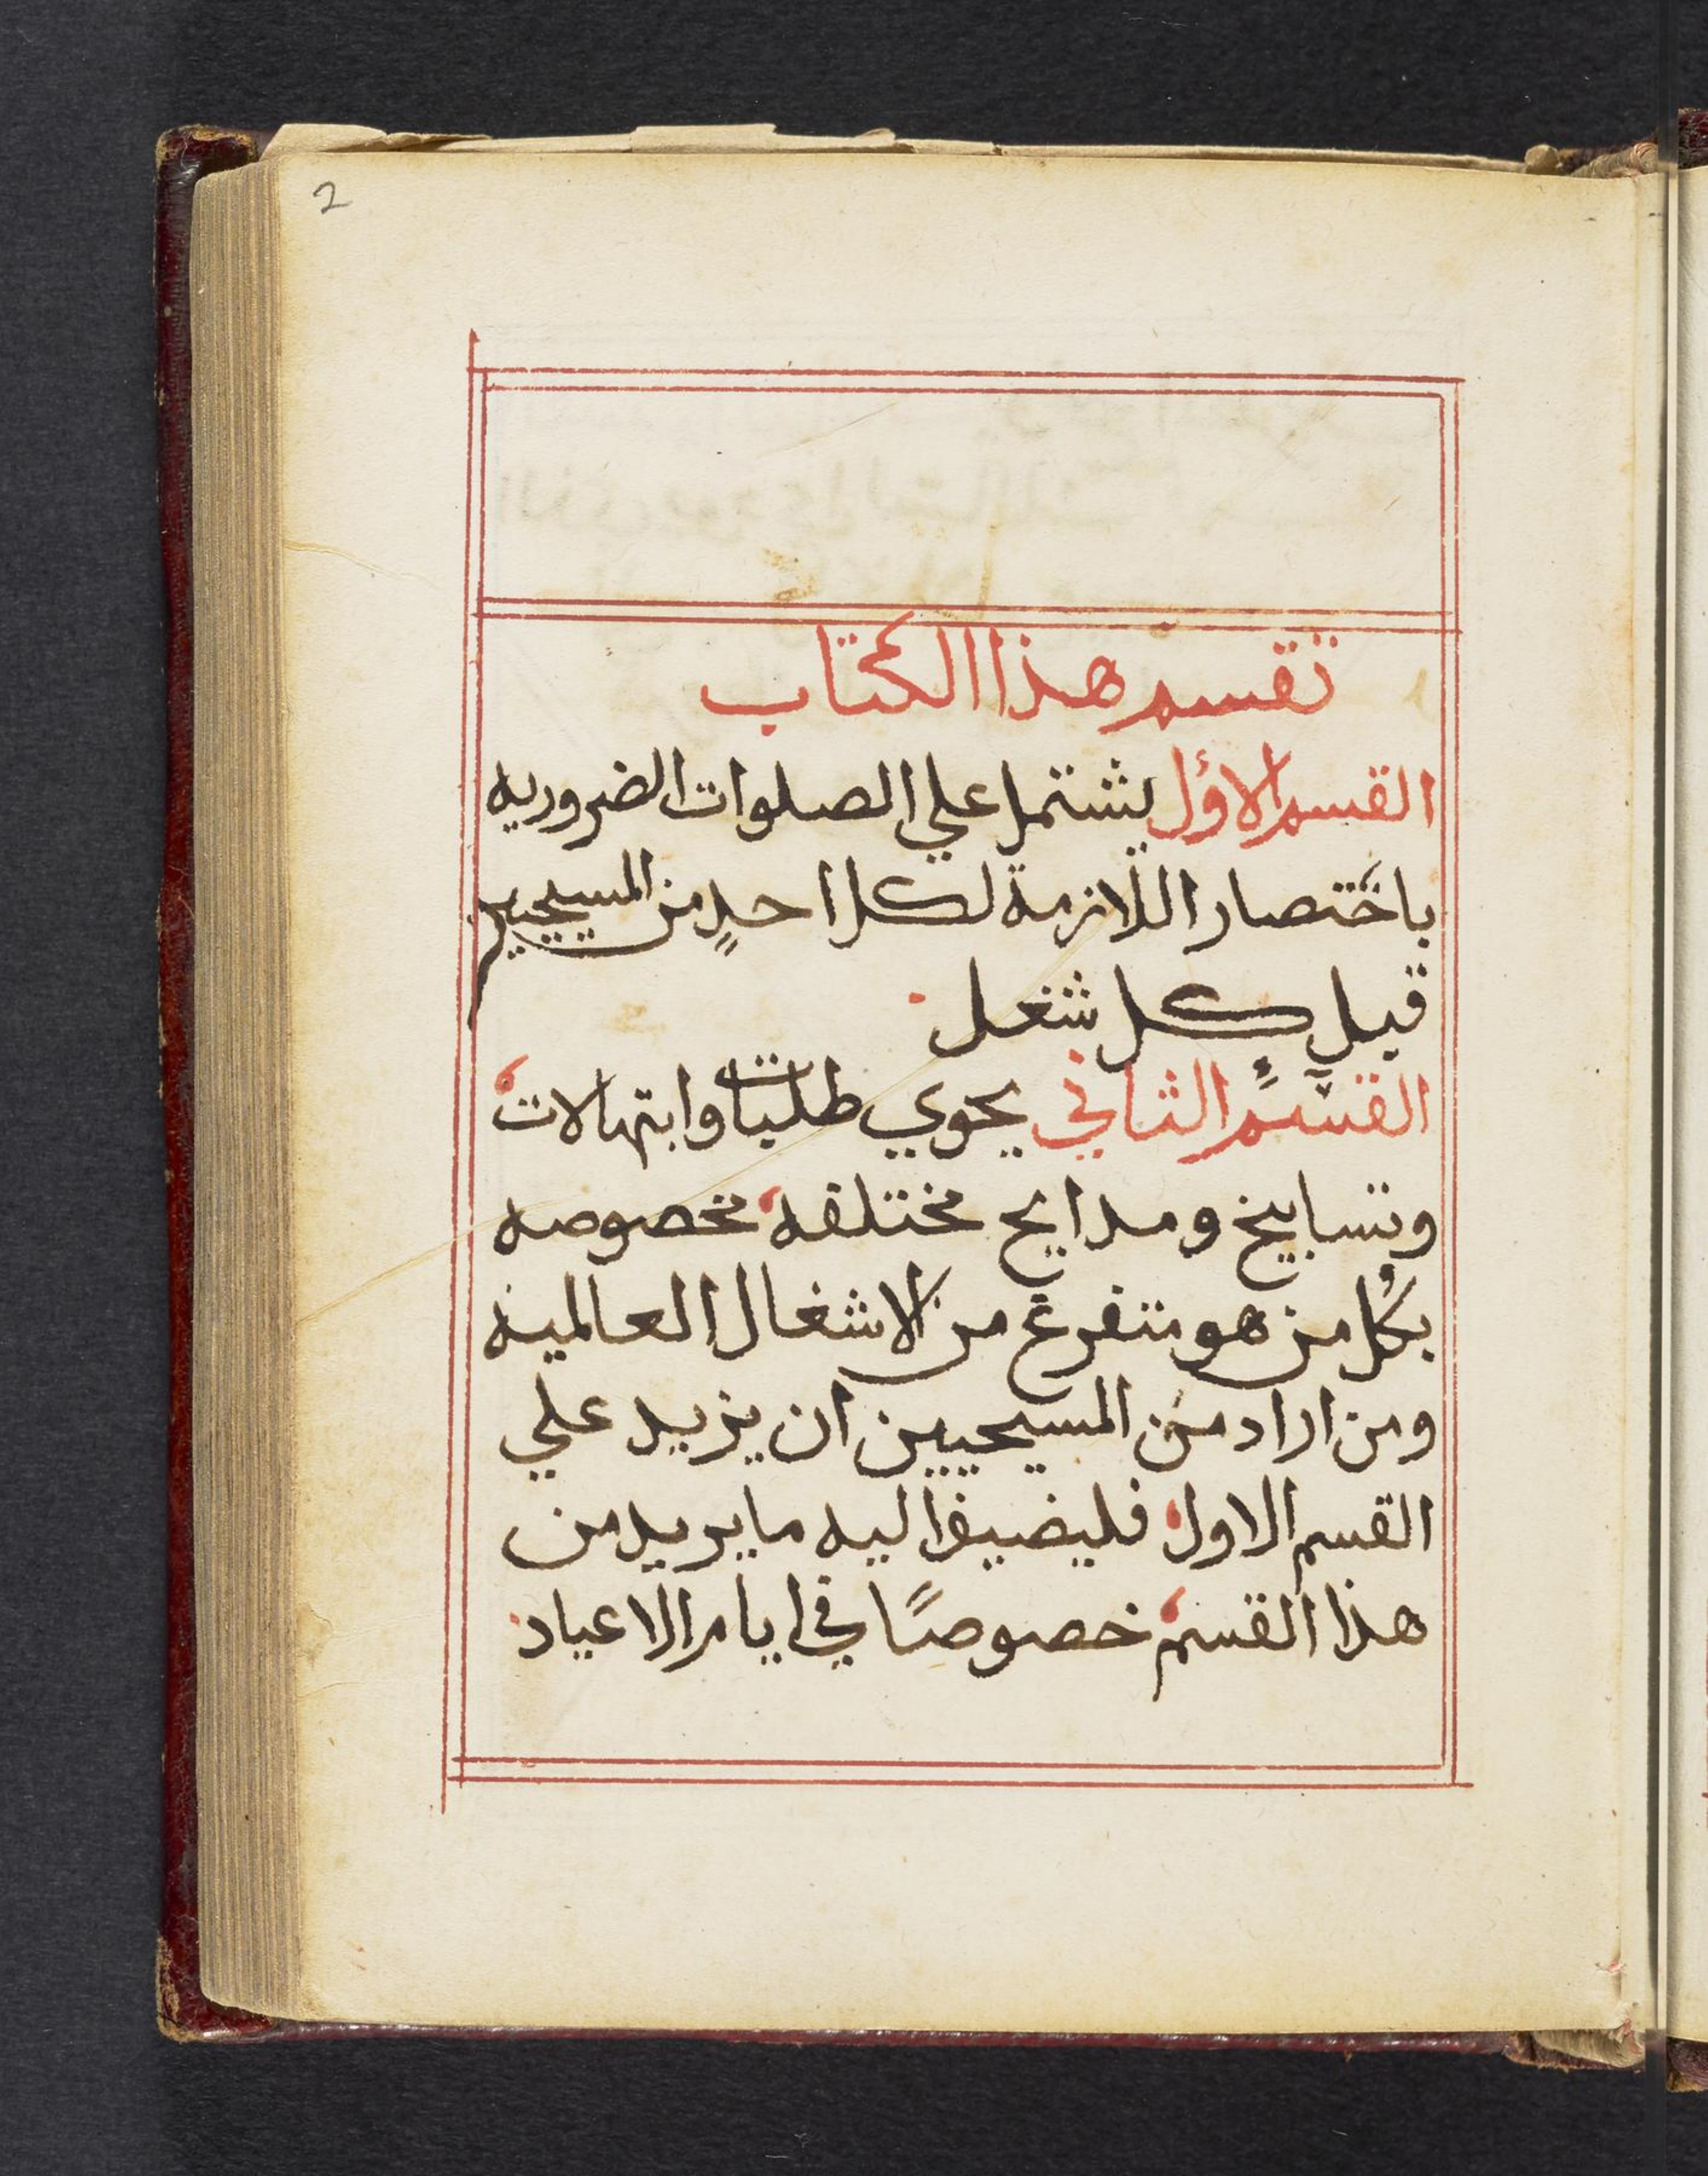 2
تقسيم هذا الكتاب
القسم الاوّل يشتمل علي الصلوات الضروريه
باختصار اللازمة لكل احدٍ من المسيحيين
قبل كل شغل
القسم الثاني يحوي طلبات وابتهالات
وتسابيح ومدايح مختلفه مخصوصه
بكُل من هو متفرغ من الاشغال العالميه
ومن اراد من المسيحيين ان يزيد علي
القسم الاول فليضيف اليه ما يريد من
هذا القسم خصوصًا في ايام الاعياد